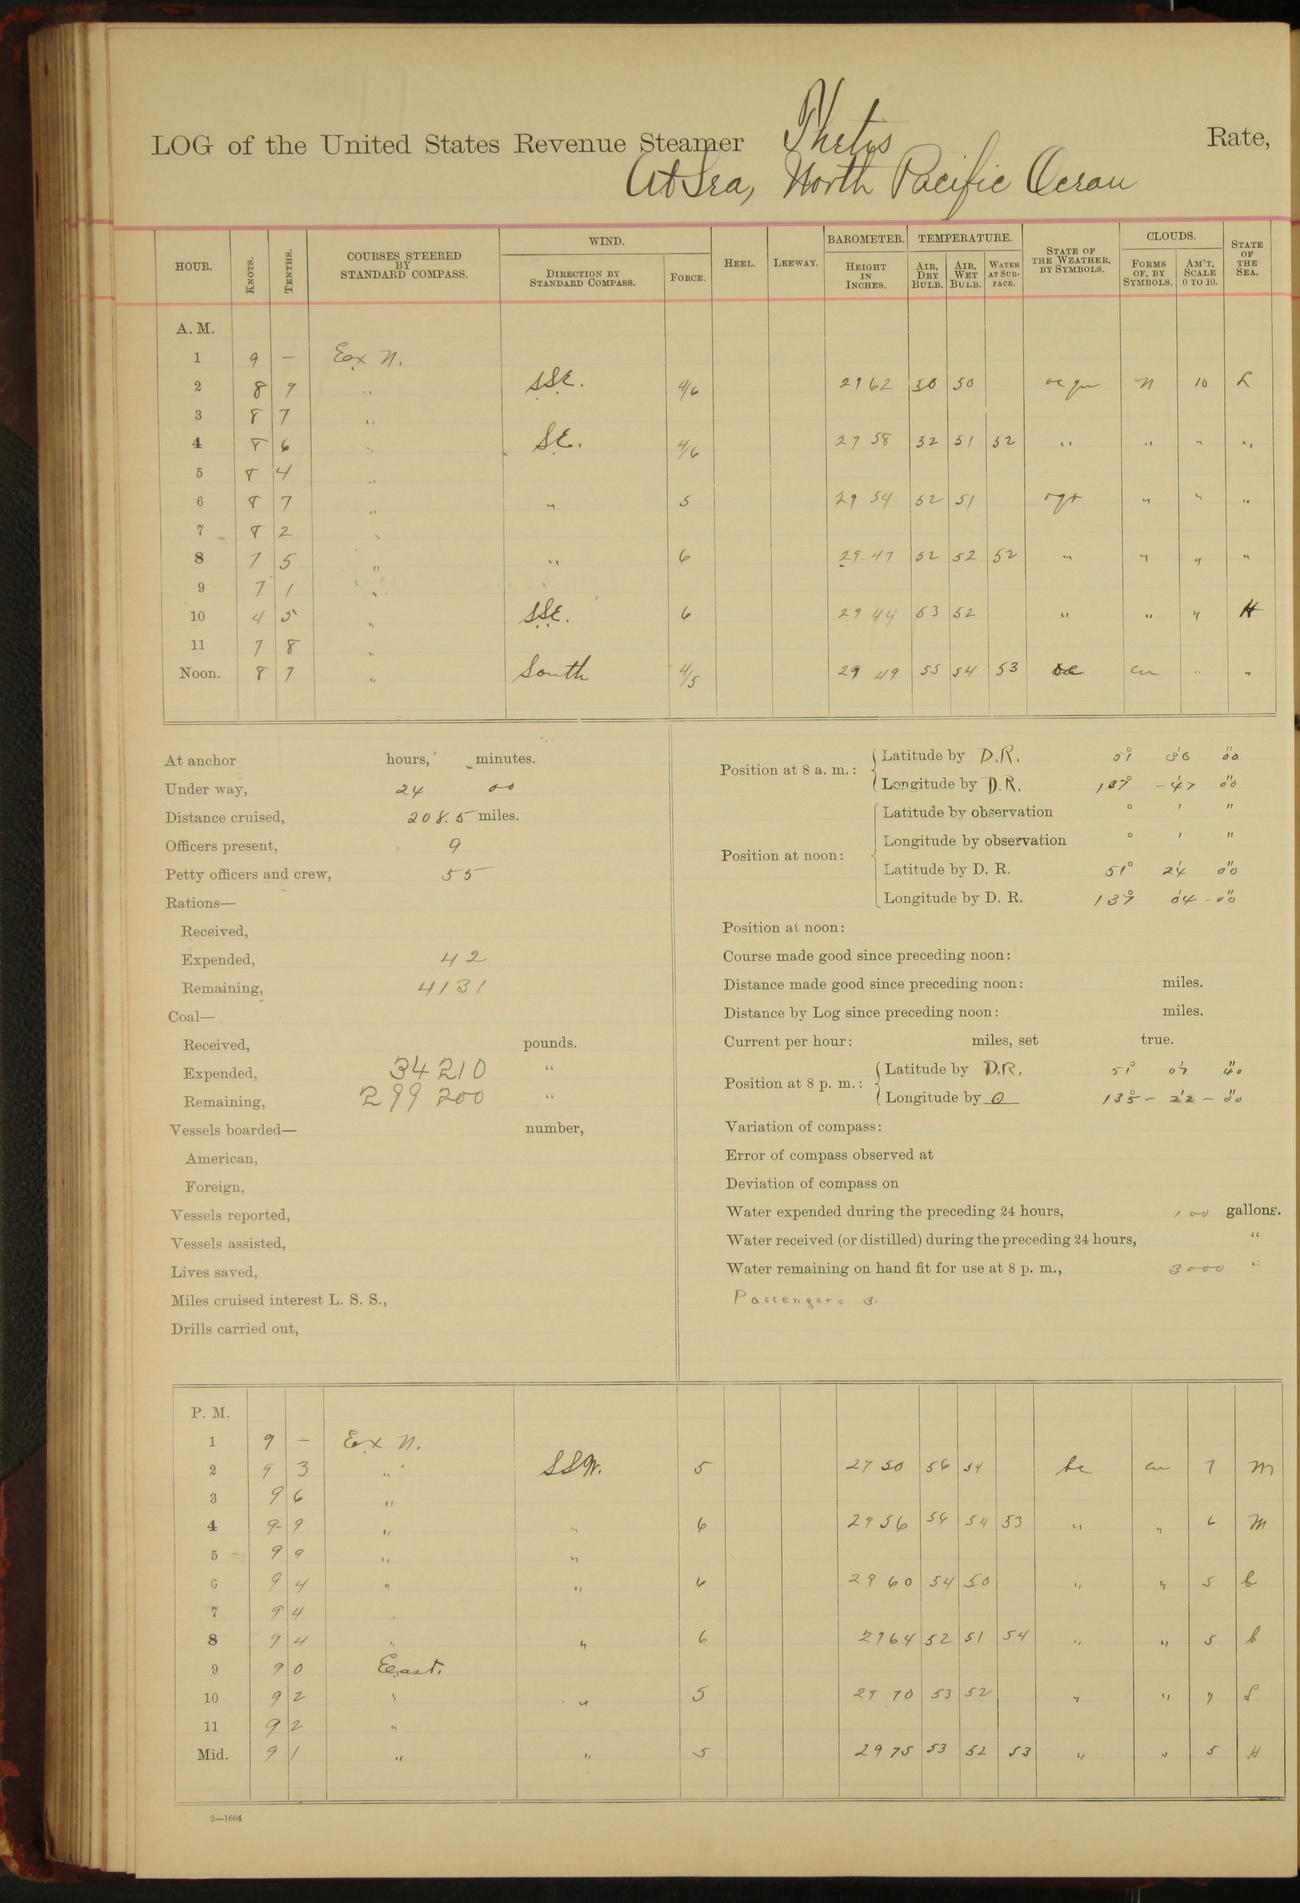 LOG of the United States Revenue Steamer Thetis Rate,
At Sea, North Pacific Ocean
HOUR. KNOTS. TENTHS. COURSES STEERED BY STANDARD COMPASS. WIND. DIRECTION BY STANDARD COMPASS. FORCE. HEEL. LEEWAY. BAROMETER. HEIGHT IN INCHES. TEMPERATURE. AIR, DRY BULB. AIR, WET BULB. WATER AT SURFACE. STATE OF THE WEATHER, BY SYMBOLS. CLOUDS. FORMS OF, BY SYMBOLS. AM'T, SCALE 0 TO 10. STATE OF THE SEA.
A. M.
1 9 — E x N.
2 8 9 " SSE. 4/6 29 62 50 50 N 10 L
3 8 7 "
4 8 6 " SE. 4/6 29 58 52 51 52 " " " "
5 8 4 "
6 8 7 " " 5 29 54 52 51 " " "
7 8 2 "
8 7 5 " " 6 29.47 52 52 52 " " " "
9 7 1 "
10 4 5 " SSE. 6 29 44 53 52 " " " H
11 7 8 "
Noon. 8 7 " South 4/5 29 49 55 54 53 bc cu " "
At anchor hours, minutes.
Under way, 24 00
Distance cruised, 208.5 miles.
Officers present, 9
Petty officers and crew, 55
Rations—
Received,
Expended, 42
Remaining, 4131
Coal—
Received, pounds.
Expended, 34210 "
Remaining, 299200 "
Vessels boarded— number,
American,
Foreign,
Vessels reported,
Vessels assisted,
Lives saved,
Miles cruised interest L. S. S.,
Drills carried out,
Position at 8 a. m.: Latitude by D.R. 51° 36' 00"
Longitude by D.R. 137° - 47' 00"
Position at noon: Latitude by observation ° ' "
Longitude by observation ° ' "
Latitude by D. R. 51° 24' 00"
Longitude by D. R. 137° 04' - 00"
Position at noon:
Course made good since preceding noon:
Distance made good since preceding noon: miles.
Distance by Log since preceding noon: miles.
Current per hour: miles, set true.
Position at 8 p. m.: Latitude by D.R. 51° 07' 40"
Longitude by O 135° - 22' - 00"
Variation of compass:
Error of compass observed at
Deviation of compass on
Water expended during the preceding 24 hours, 100 gallons.
Water received (or distilled) during the preceding 24 hours, "
Water remaining on hand fit for use at 8 p. m., 3000 "
Passengers 3.
P. M.
1 9 — E x N.
2 9 3 " SSW. 5 29 50 56 54 bc cu 7 M
3 9 6 "
4 9 9 " " 6 29 56 56 54 53 " " 6 M
5 9 9 " "
6 9 4 " " 6 29 60 54 50 " " 5
7 9 4
8 9 4 " " 6 29 64 52 51 54 " " 5
9 9 0 East.
10 9 2 " " 5 29 70 53 52 " " 7
11 9 2 "
Mid. 9 1 " " 5 29 75 53 52 53 " " 5 H
2—1664